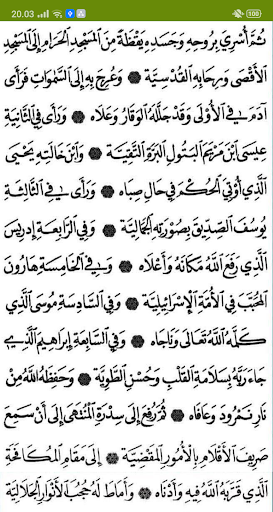 20.03
100
ثُمَّ أُسْرِيَ بِرُوحِهِ وَجَسَدِهِ يَقْظَةً مِنَ الْمَسْجِدِ الْحَرَامِ إِلَى الْمَسْجِدِ
الْأَقْصَى وَرِحَابِهِ الْقُدْسِيَّةِ ۞ وَعُرِجَ بِهِ إِلَى السَّمٰوَاتِ فَرَأَى
آدَمَ فِي الْأُوْلَى وَقَدْ جَلَّلَهُ الْوَقَارُ وَعَلَاهُ ۞ وَرَأَى فِي الثَّانِيَةِ
عِيسَى ابْنَ مَرْيَمَ الْبَتُولِ الْبَرَّةِ التَّقِيَّةِ ۞ وَابْنَ خَالَتِهِ يَحْيَى
الَّذِي أُوْتِيَ الْحُكْمَ فِي حَالِ صِبَاهُ ۞ وَرَأَى فِي الثَّالِثَةِ
يُوسُفَ الصِّدِّيقَ بِصُورَتِهِ الْجَمَالِيَّةِ ۞ وَفِي الرَّابِعَةِ إِدْرِيسَ
الَّذِي رَفَعَ اللَّهُ مَكَانَهُ وَأَعْلَاهُ ۞ وَفِي الْخَامِسَةِ هَارُونَ
الْمُحَبَّبَ فِي الْأُمَّةِ الْإِسْرَائِيلِيَّةِ ۞ وَفِي السَّادِسَةِ مُوسَى الَّذِي
كَلَّمَهُ اللَّهُ تَعَالَى وَنَاجَاهُ ۞ وَفِي السَّابِعَةِ إِبْرَاهِيمَ الَّذِي
جَاءَ رَبَّهُ بِسَلَامَةِ الْقَلْبِ وَحُسْنِ الطَّوِيَّةِ ۞ وَحَفِظَهُ اللَّهُ مِنْ
نَارِ نَمْرُودَ وَعَافَاهُ ۞ ثُمَّ رُفِعَ إِلَى سِدْرَةِ الْمُنْتَهَى إِلَى أَنْ سَمِعَ
صَرِيفَ الْأَقْلَامِ بِالْأُمُورِ الْمَقْضِيَّةِ ۞ إِلَى مَقَامِ الْمُكَافَحَةِ
الَّذِي قَرَّبَهُ اللَّهُ فِيهِ وَأَدْنَاهُ ۞ وَأَمَاطَ لَهُ حُجُبَ الْأَنْوَارِ الْجَلَالِيَّةِ